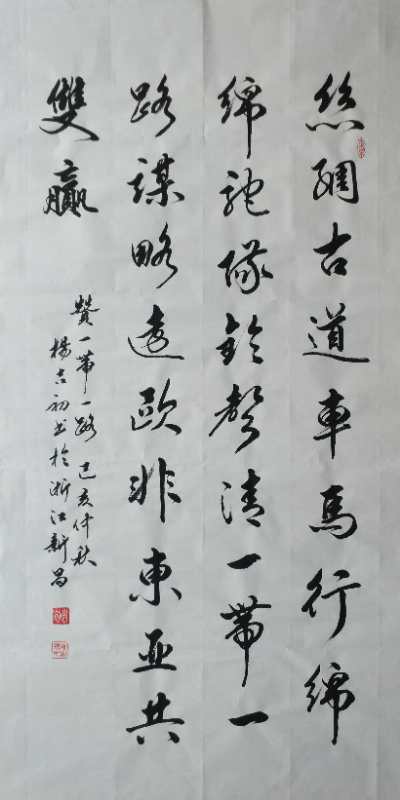 絲綢古道車馬行綿
綿駝隊鈴聲清一帶一
路謀略遠歐非東亞共
雙贏
贊一帶一路 己亥仲秋
楊吉初书於浙江新昌